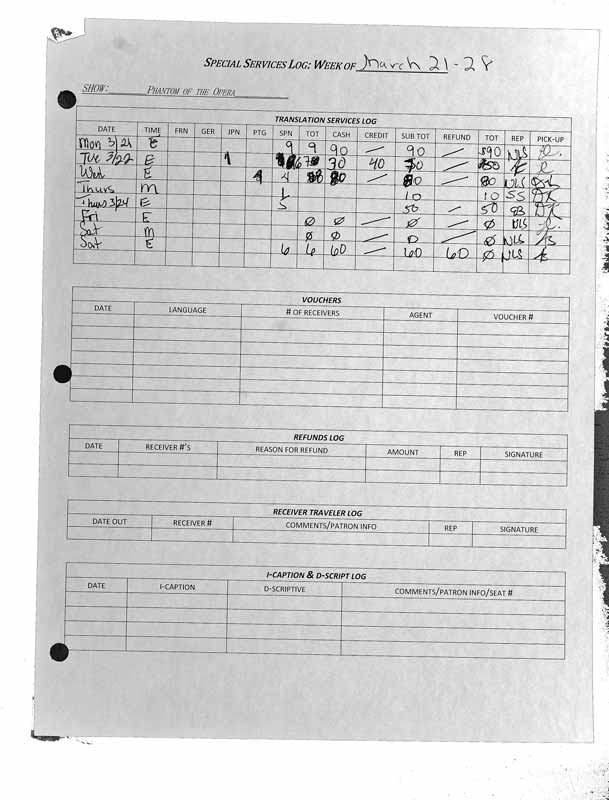 SPECIAL SERVICES LOG: WEEK OF March 21-28
SHOW: PHANTOM OF THE OPERA
TRANSLATION SERVICES LOG
DATE TIME FRN GER JPN PTG SPN TOT CASH CREDIT SUB TOT REFUND TOT REP PICK-UP
Mon 3/21 E 9 9 90 — 90 — $90 NLS
Tue 3/22 E 1 30 40 — 
Wed E 4 — — 80 NLS DK
Thurs M 1 10 10 SS DK
Thurs 3/24 E 5 50 — 50 DK
Fri E Ø Ø — Ø — Ø NLS
Sat M Ø Ø — 0 — Ø NLS
Sat E 6 6 60 — 60 60 Ø NLS
VOUCHERS
DATE LANGUAGE # OF RECEIVERS AGENT VOUCHER #
REFUNDS LOG
DATE RECEIVER #'S REASON FOR REFUND AMOUNT REP SIGNATURE
RECEIVER TRAVELER LOG
DATE OUT RECEIVER # COMMENTS/PATRON INFO REP SIGNATURE
I-CAPTION & D-SCRIPT LOG
DATE I-CAPTION D-SCRIPTIVE COMMENTS/PATRON INFO/SEAT #